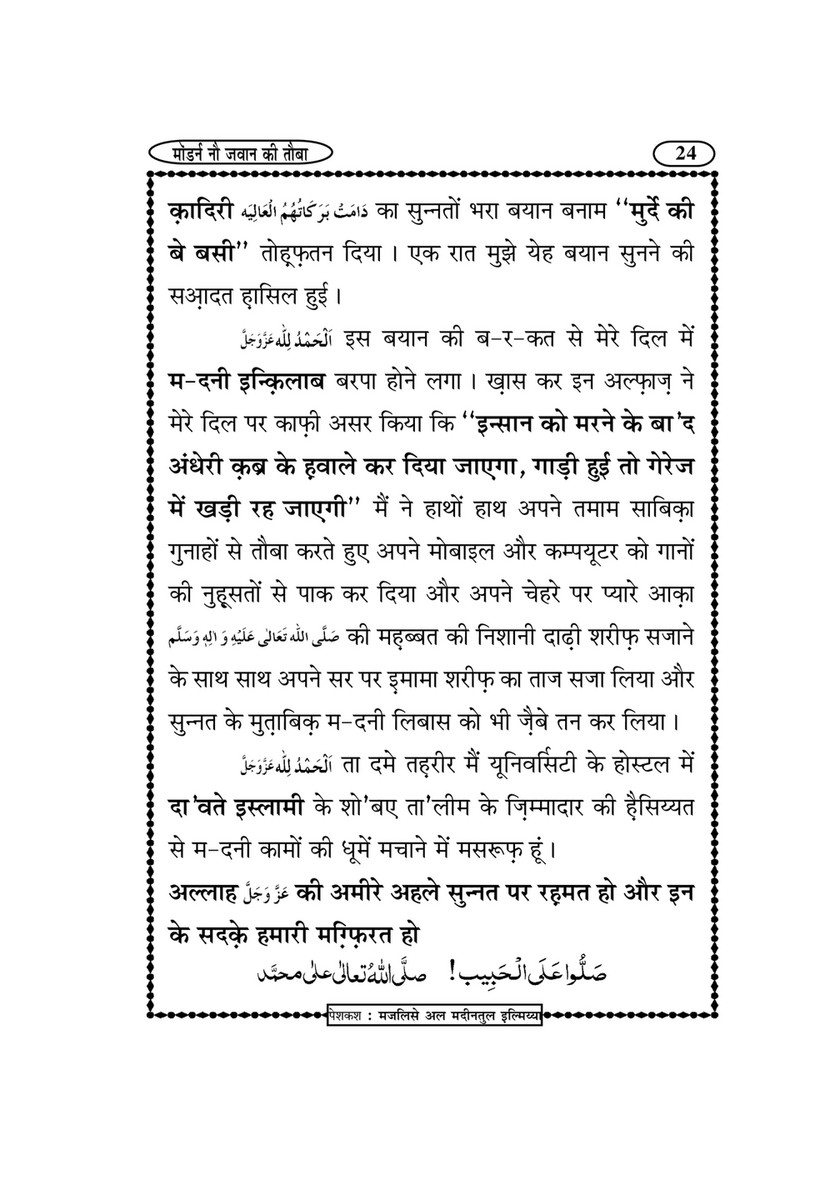 मॉडर्न नौ जवान की तौबा
24
क़ादिरी دَامَتْ بَرَكَاتُهُمُ الْعَالِيَه का सुन्नतों भरा बयान बनाम ‘‘मुर्दे की
बे बसी’’ तोह़्फ़तन दिया । एक रात मुझे येह बयान सुनने की
सआ़दत ह़ासिल हुई ।
اَلْحَمْدُ لِلّٰه عَزَّوَجَلَّ इस बयान की ब-र-कत से मेरे दिल में
म-दनी इन्क़िलाब बरपा होने लगा । ख़ास कर इन अल्फ़ाज़ ने
मेरे दिल पर काफ़ी असर किया कि ‘‘इन्सान को मरने के बा’द
अंधेरी क़ब्र के ह़वाले कर दिया जाएगा, गाड़ी हुई तो गेरेज
में खड़ी रह जाएगी’’ मैं ने हाथों हाथ अपने तमाम साबिक़ा
गुनाहों से तौबा करते हुए अपने मोबाइल और कम्पयूटर को गानों
की नुह़ूसतों से पाक कर दिया और अपने चेहरे पर प्यारे आक़ा
صَلَّى اللّٰه تَعَالٰى عَلَيْهِ وَ اٰلِهٖ وَسَلَّم की मह़ब्बत की निशानी दाढ़ी शरीफ़ सजाने
के साथ साथ अपने सर पर इ़मामा शरीफ़ का ताज सजा लिया और
सुन्नत के मुत़ाबिक़ म-दनी लिबास को भी ज़ैबे तन कर लिया ।
اَلْحَمْدُ لِلّٰه عَزَّوَجَلَّ ता दमे तह़रीर मैं यूनिवर्सिटी के होस्टल में
दा’वते इस्लामी के शो’बए ता’लीम के ज़िम्मादार की ह़ैसिय्यत
से म-दनी कामों की धूमें मचाने में मसरूफ़ हूं ।
अल्लाह عَزَّ وَجَلَّ की अमीरे अहले सुन्नत पर रह़मत हो और इन
के सदक़े हमारी मग़्फ़िरत हो
صَلُّوا عَلَى الْحَبِيب! صلَّى اللّٰهُ تعالٰى على محمَّد
पेशकश : मजलिसे अल मदीनतुल इल्मिय्या